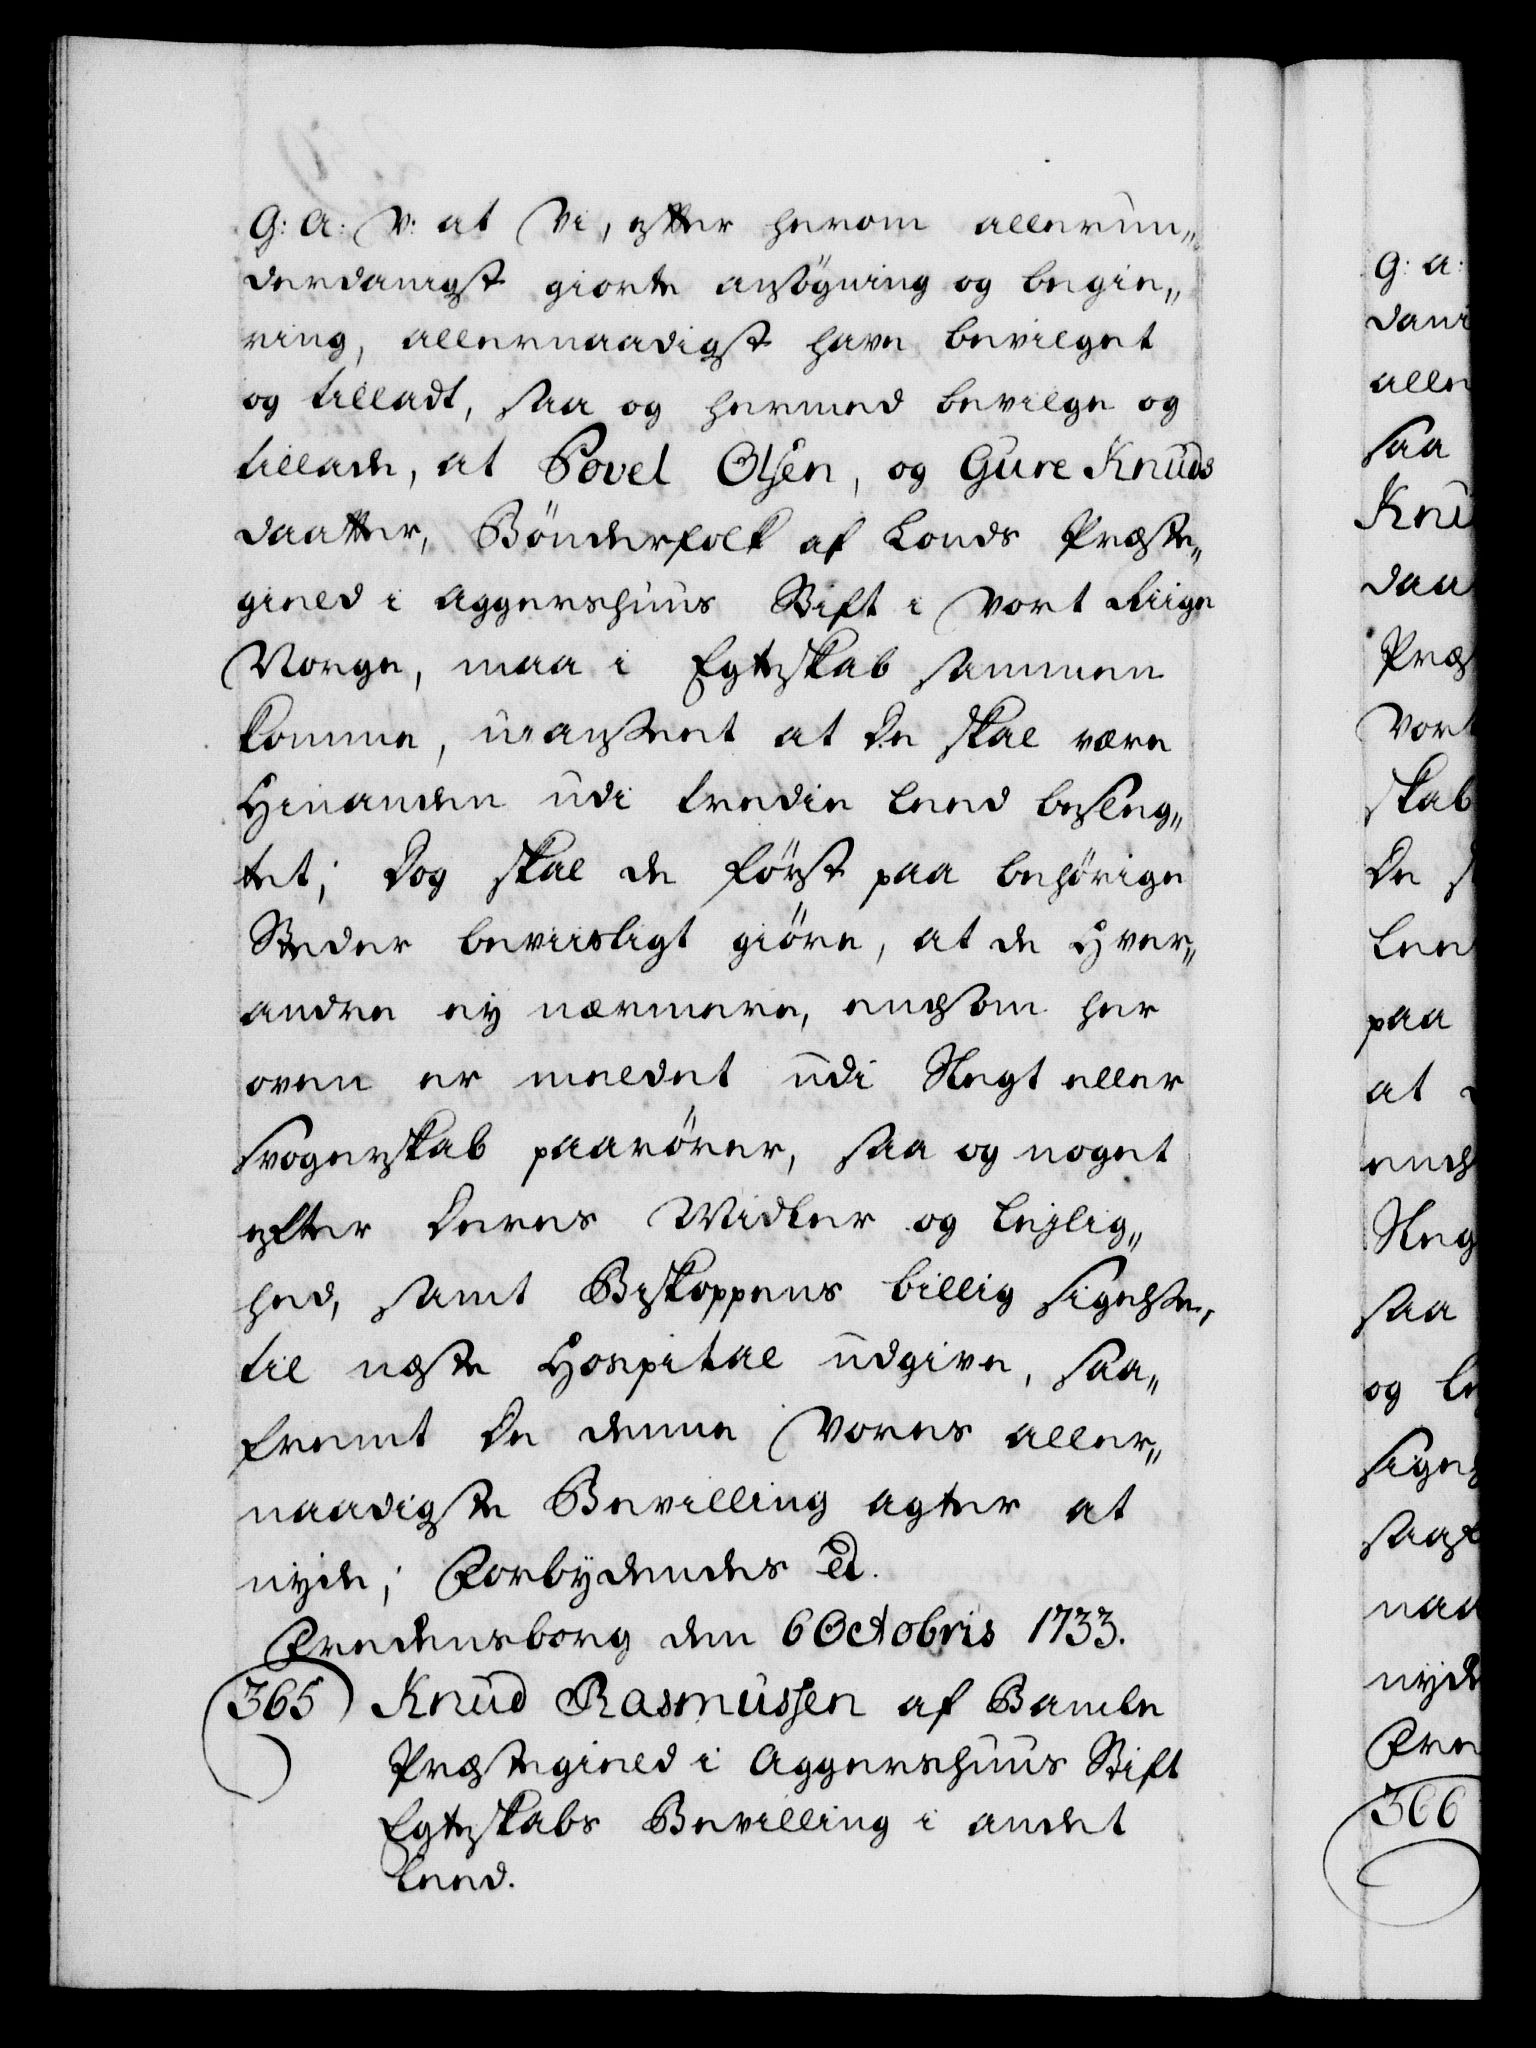 G: A: V: at Vi, efter herom allerun„
derdanigst giorte ansögning og begie„
ring, allernaadigst have bevilget
og tilladt, saa og hermed bevilge og
tillade, at Povel Olsen, og Gure Knuds
daatter, Bönderfolk af Louds Præste„
gield i Aggershuus Stift i Vort Riige
Norge, maa i Egteskab sammen
komme, uanseet at De skal være
Hinanden udi tredie Leed besleg„
tet; Dog skal de først paa behörige
Steder beviisligt giöre, at de Hver„
andre ey nærmere, endsom her
oven er meldet udi Slegt eller
Svogerskab paarörer, saa og noget
efter Deres Midler og Lejlig„
hed, samt Biskoppens billig sigelse,
til næste Hospital udgive, saa„
fremt De denne Vores aller„
naadigste Bevilling agter at
nyde; Forbydendes etc.
Fredensborg den 6 Octobris 1733.
365 Knud Rasmussen af Bamble
Præstegield i Aggershuus Stift
Egteskabs Bevilling i andet
Leed.
G: A:
dani
alle
saa
Knu
daa
Præs
Vort
skab
De s
Lee
paa
at
ends
Sleg
saa
og le
sigel
saaf
naa
nyde
Fre
366